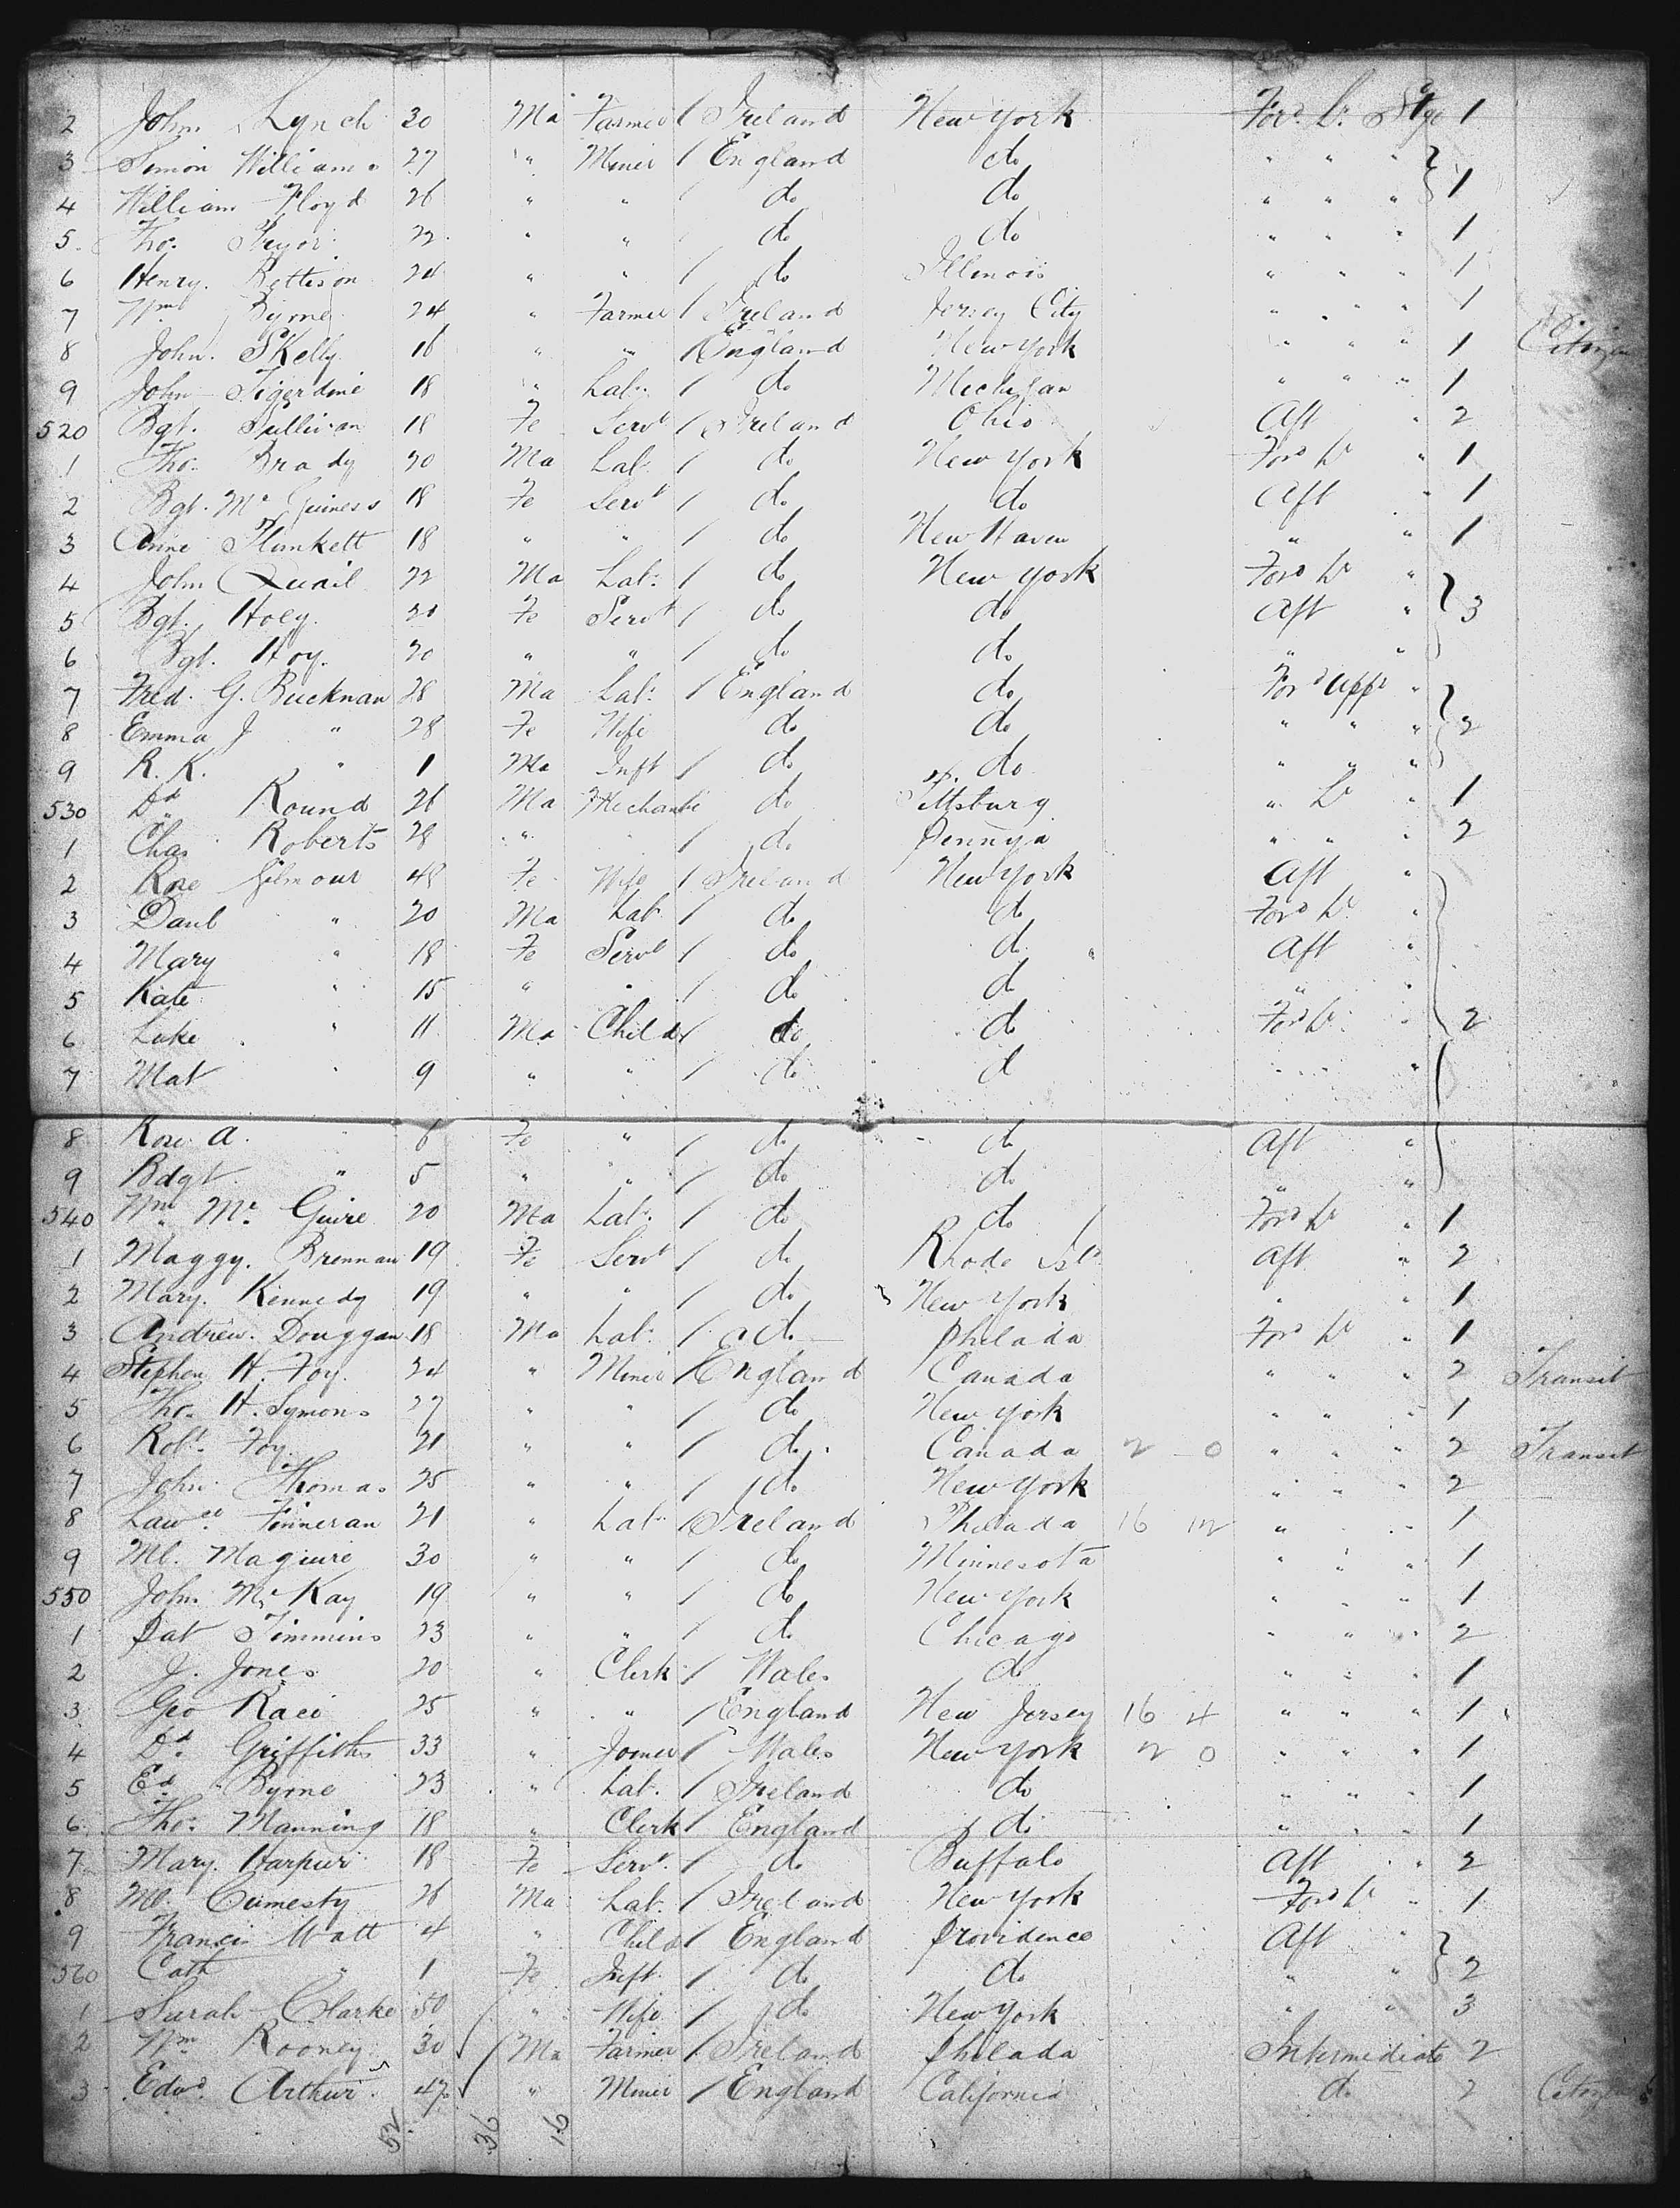 2 John Lynch 30 Ma Farmer 1 Ireland New York For.d Lr. Stge 1
3 Simon Williams 27 " Miner 1 England do " " "
4 William Floyd 26 " " 1 do do " " " 1
5 Tho. Pryor 22 " " 1 do do " " " 1
6 Henry. Bottison 24 " " 1 do Illinois " " " 1
7 Wm Byrne 24 " Farmer 1 Ireland Jersey City " " " 1
8 John. Skelly 16 " " 1 England New York " " " 1 Citizen
9 John 18 " Labr. 1 do Michigan " " " 1
520 Bgt. Sullivan 18 Fe Servt 1 Ireland Ohio Aft " 2
1 Tho. Brady 20 Ma Labr 1 do New York Ford Lr " 1
2 Bgt. Mc Guiness 18 Fe Servt 1 do do Aft " 1
3 Anne Plunkett 18 " " 1 do New Haven " " 1
4 John Quail 22 Ma Labr. 1 do New York Ford Lr "
5 Bgt. Hoey. 21 Fe Servt 1 do do Aft " 3
6 Bgt. Hoy. 20 " " 1 do do " "
7 Fred. G. Bucknan 28 Ma Labr. 1 England do Ford Uppr "
8 Emma J " 28 Fe Wife do do " " " 2
9 R. K. " 1 Ma Inft 1 do do " " "
530 Dd Round 26 Ma Mechanic do Pittsburg " Lr " 1
1 Chas Roberts 28 " " 1 do Pennya " " " 2
2 Rose Gilmour 48 Fe Wife 1 Ireland New York Aft "
3 Danl " 20 Ma Labr 1 do do Ford Lr "
4 Mary " 18 Fe Servt 1 do do Aft "
5 Kate " 15 " " 1 do do " "
6 Luke " 11 Ma Child 1 do do Ford Lr " 2
7 Mat " 9 " " 1 do do " " "
8 Rose A. " 6 Fe " 1 do do Aft "
9 Bdgt " 5 " " 1 do do " "
540 Wm Mc Guire 20 Ma Labr. 1 do do Ford Lr " 1
1 Maggy. Brennan 19 Fe Servt 1 do Rhode Isld Aft " 2
2 Mary. Kennedy 19 " " 1 do New York " " 1
3 Andrew. Douggan 18 Ma Labr. 1 do Philada Ford Lr " 1
4 Stephen H. Foy. 24 " Miner 1 England Canada " " " 2 Transit
5 Tho. H. Symons 27 " " 1 do New York " " " 1
6 Robt. Foy. 21 " " 1 do Canada 2 - 0 " " " 2 Transit
7 John Thomas 25 " " 1 do New York " " " 2
8 Lawce. Finneran 21 " Labr 1 Ireland Philada 16 12 " " " 1
9 Ml. Maguire 30 " " 1 do Minnesota " " " 1
550 John Mc Kay 19 " " 1 do New York " " " 1
1 Pat Timmins 23 " " 1 do Chicago " " " 2
2 J. Jones 20 " Clerk 1 Wales do " " " 1
3 Geo 25 " " 1 England New Jersey 16 4 " " " 1
4 Dd. Griffiths 33 " Joiner 1 Wales New York 2 0 " " " 1
5 Ed. Byrne 23 " Labr. 1 Ireland do " " " 1
6 Tho. Manning 18 " Clerk 1 England do " " " 1
7 Mary. Harpur 18 Fe Servt. 1 do Buffalo Aft " 2
8 Ml. 26 Ma Labr. 1 Ireland New York Ford Lr " 1
9 Francis Watt 4 " Child 1 England Providence Aft "
560 Cath " 1 Fe Inft. 1 do do " " 2
1 Sarah Clarke 50 " Wife 1 do New York " " 3
2 Wm Rooney 30 Ma Farmer 1 Ireland Philada Intermediate 2
3 Edwd. Arthur 47 " Miner 1 England California do 2 Citizen
52 36 16